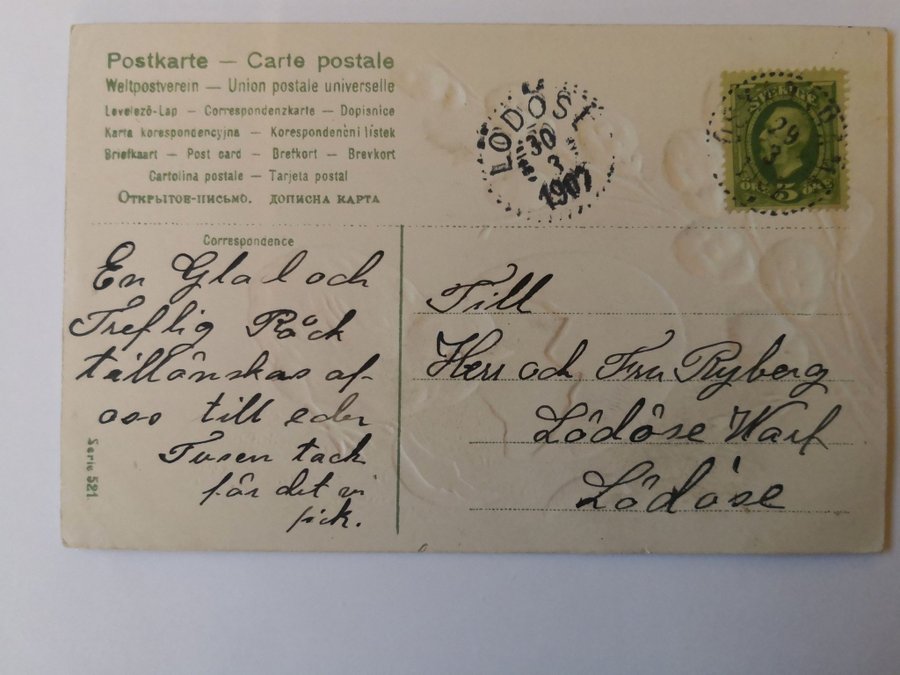 Postkarte — Carte postale
Weltpostverein — Union postale universelle
Levelező-Lap — Correspondenzkarte — Dopisnice
Karta korespondencyjna — Korespondenční lístek
Briefkaart — Post card — Brefkort — Brevkort
Cartolina postale — Tarjeta postal
Открытое-письмо. дописна карта
Correspondence
En Glad och
Treflig Påsk
tillönskas af
oss till eder
Tusen tack
för det vi
fick.
Serie 521
LÖDÖSE
30
3
1907
SVERIGE
29
3
5
Till
Herr och Fru Ryberg
Lödöse Warf
Lödöse